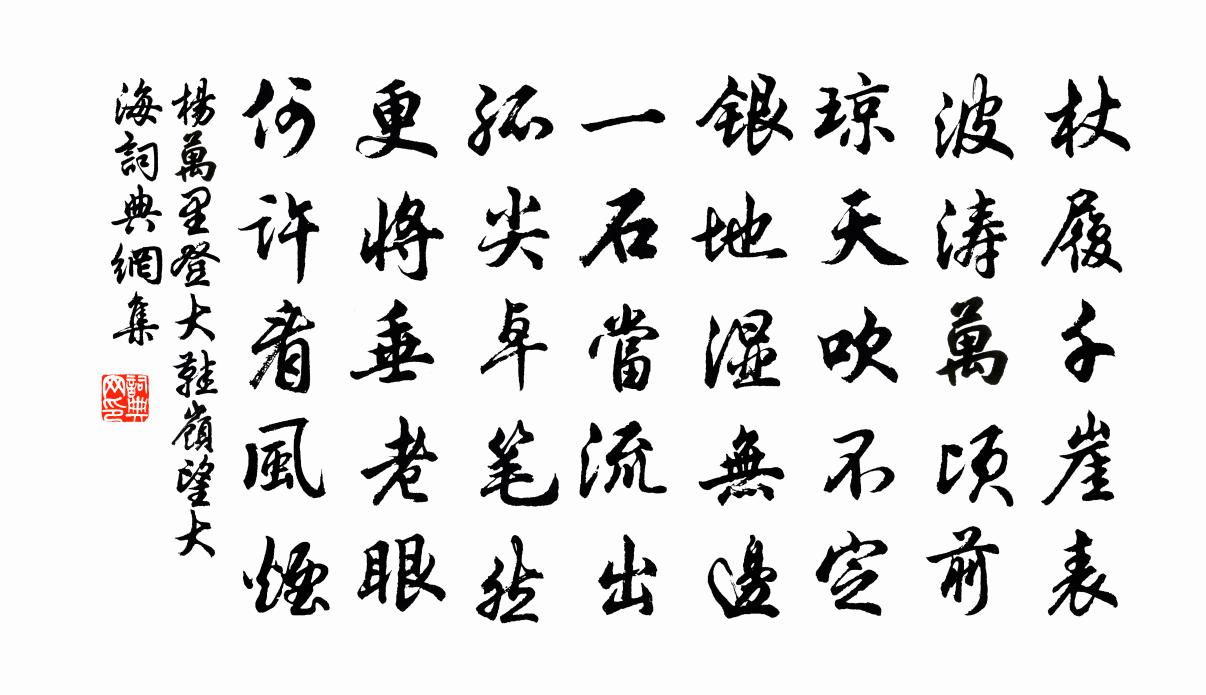 杖履千崖表
波涛萬頃前
琼天吹不定
銀地湿無邊
一石當流出
孤尖卓笔然
更將垂老眼
何許看風煙
楊萬里登大鞋嶺望大
海詞典網集
詞典
网印